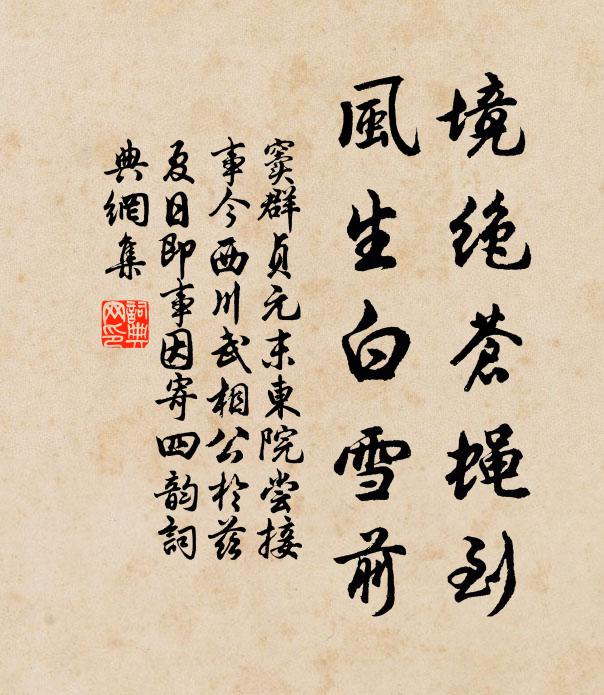 境绝苍蝇到
風生白雪前
窦群貞元末東院尝接
事今西川武相公於兹
夏日即事因寄四韵詞
典網集
詞典网印